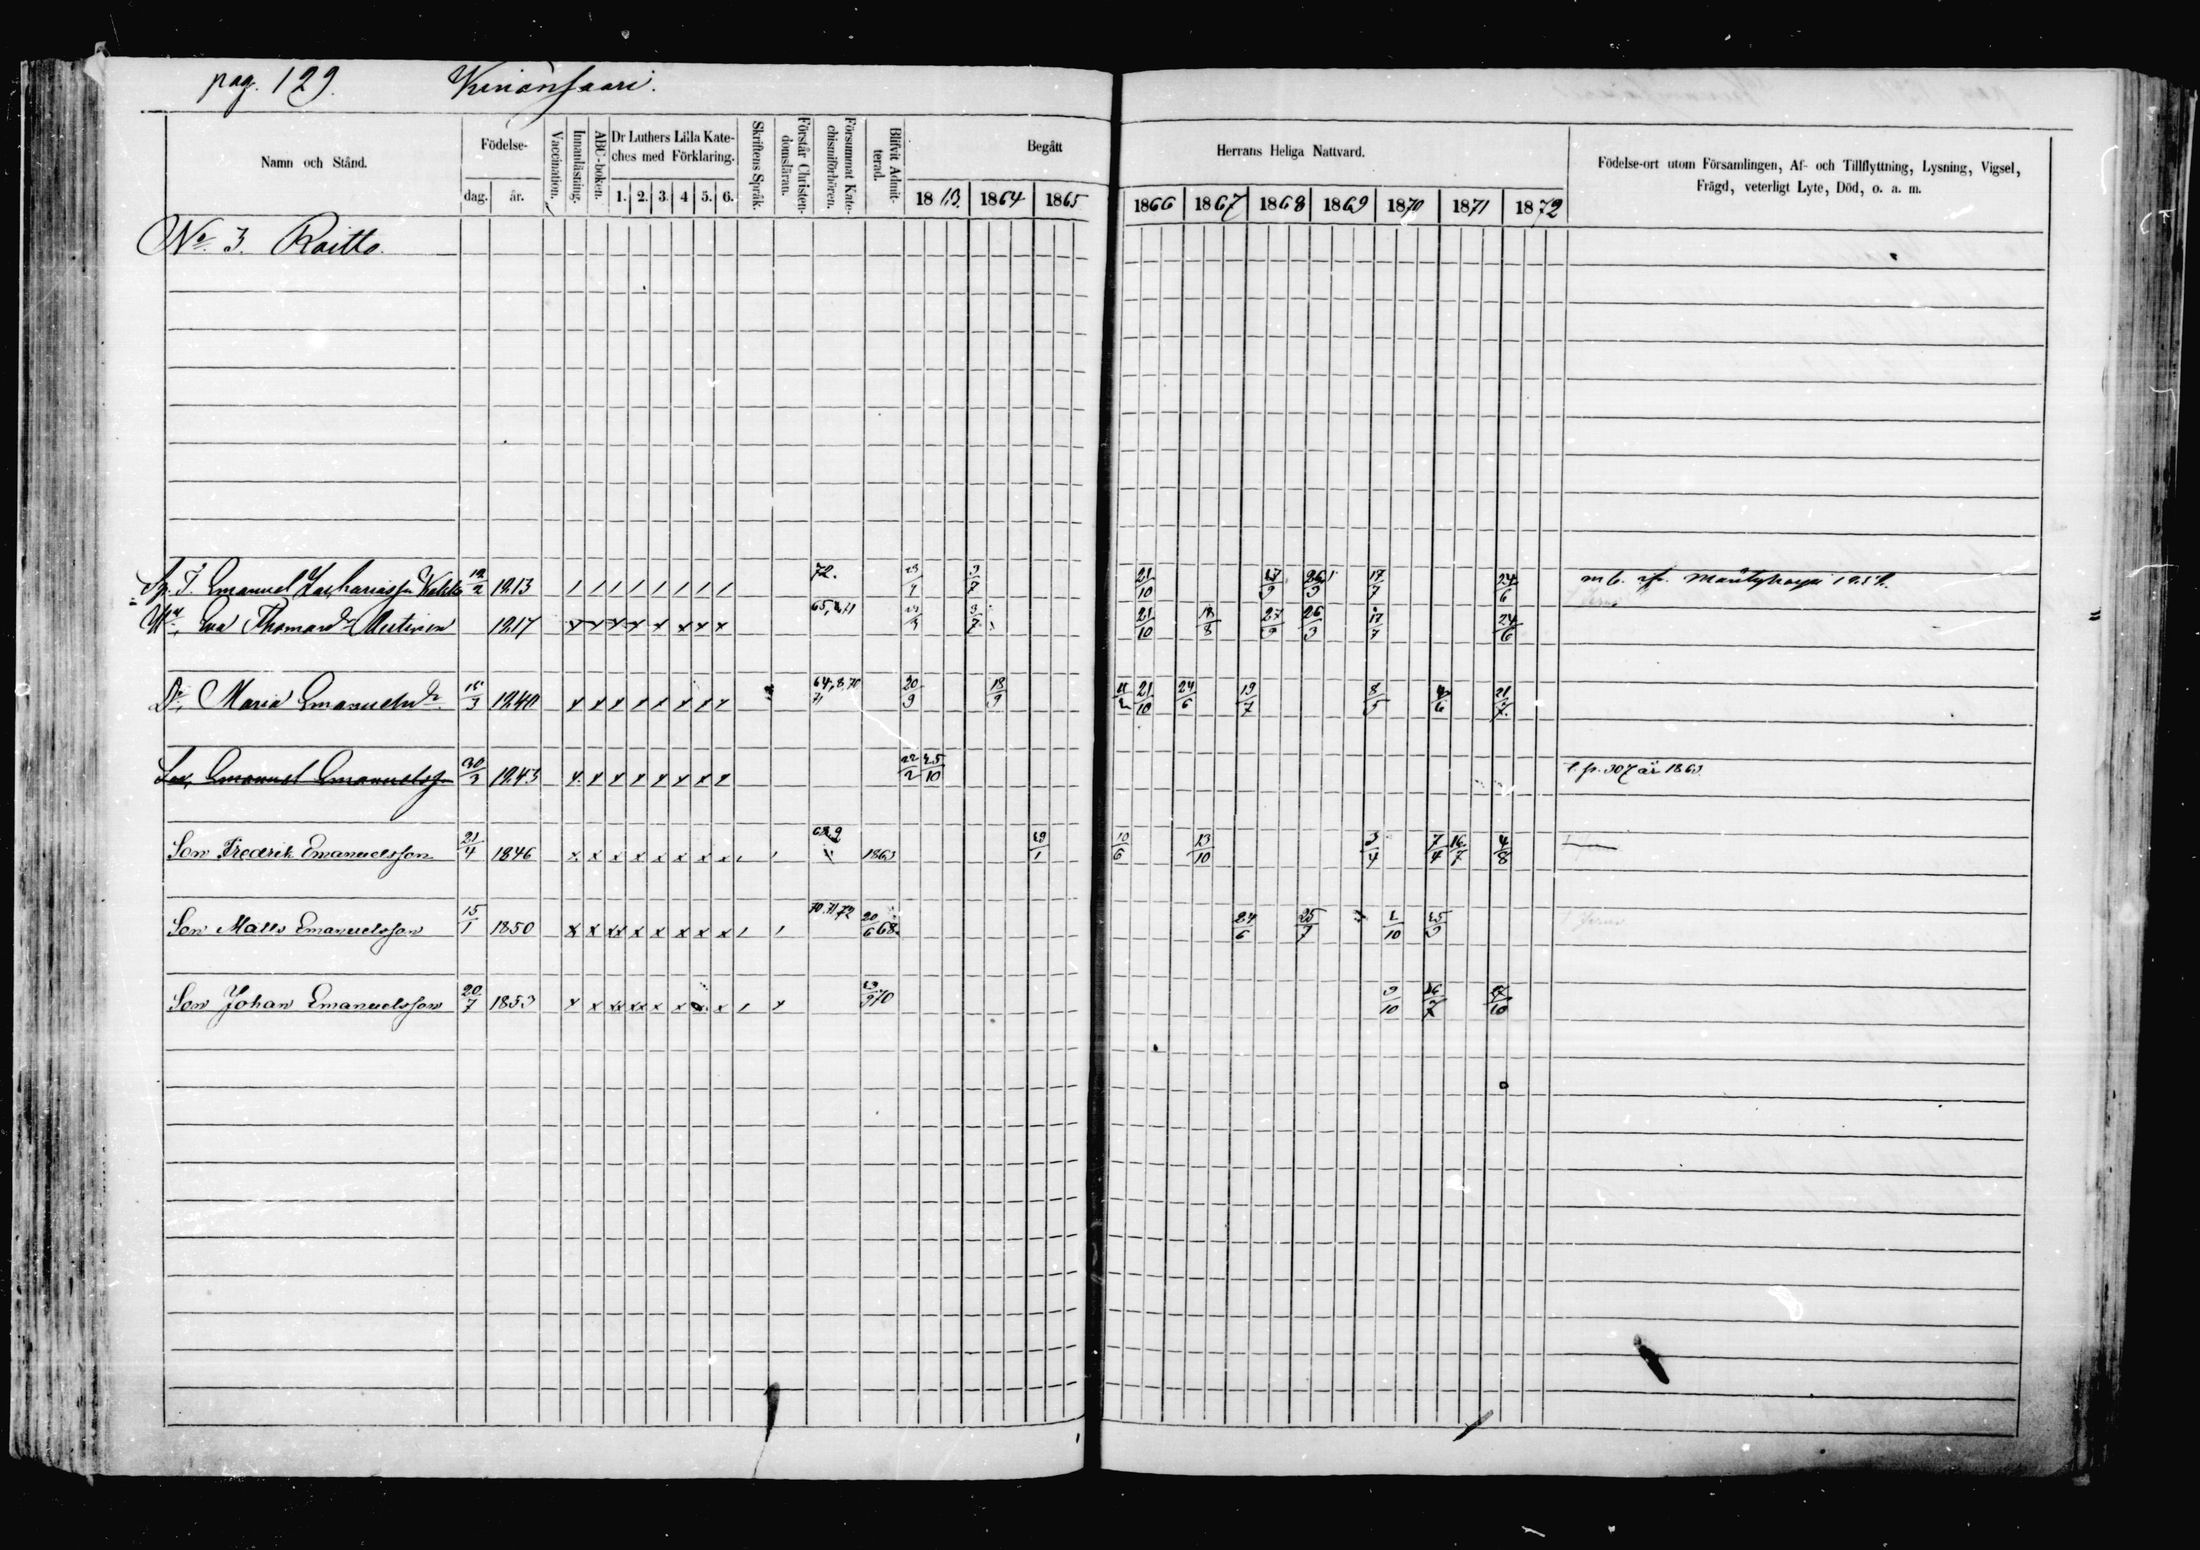 pag. 129. Kinansaari.
Namn och Stånd.
Födelse-
dag. år.
Vaccination.
Innanläsning.
ABC-boken.
Dr Luthers Lilla Kate-
ches med Förklaring.
1. 2. 3. 4 5. 6.
Skriftens Språk.
Förstår Christen-
domsläran.
Försummat Kate-
chismiförhören.
Blifvit Admit-
terad.
Begått
Herrans Heliga Nattvard.
1863. 1864 1865
1866 1867 1868 1869 1870 1871 1872
Födelse-ort utom Församlingen, Af- och Tillflyttning, Lysning, Vigsel,
Frägd, veterligt Lyte, Död, o. a. m.
No. 3. Raitto.
Emanuel Zachariasson 12/2 1813 / / / / / / / / 72. 3/7 21/10 27/9 26/3 17/7 24/6
Eva Thomasdr 1817 x x x x x x x x 3/7 21/10 18/8 27/9 26/3 17/7 24/6
Dr. Maria Emanuelsdr 15/3 1840 x x x x x x x x 64, 8, 70 71 20/9 18/9 21/10 24/6 19/7 8/5 4/6 21/7
Son, Emanuel Emanuelss. 30/3 1843 x x x x x x x x 22/2 25/10 t. p. 307 år 1863
Son Fredrik Emanuelsson 21/4 1846 x x x x x x x x 68, 9 1863 29/1 10/6 13/10 3/4 7/4 16/7 4/8
Son Matts Emanuelsson 15/1 1850 x x xx x x x x x 70. 71. 72 20/6 68. 24/6 25/7 2/10 25/9
Son Johan Emanuelsson 20/7 1853 x x xx xx x x x x 70 9/10 16/7 /10